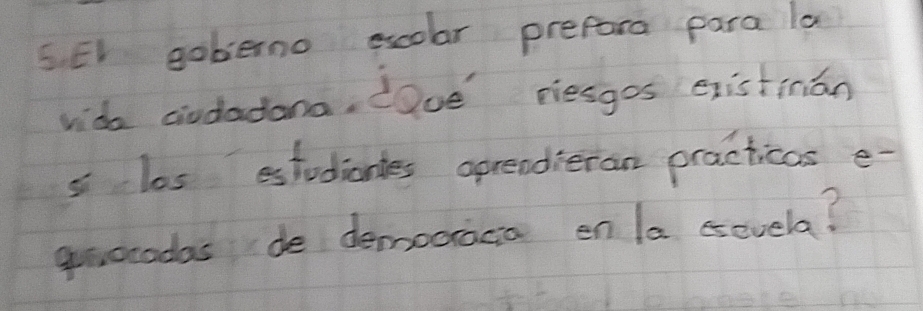 5. El gobierno escolar prepara para la
vida ciudadana. ¿Qué riesgos existirián
si los estudiantes aprendieran prácticas e-
quivocadas de democracia en la escuela?